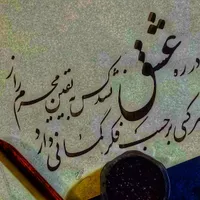 در ره عشق نشد کس بیقین محرم راز
هر کسی بر حسب فکر گمانی دارد